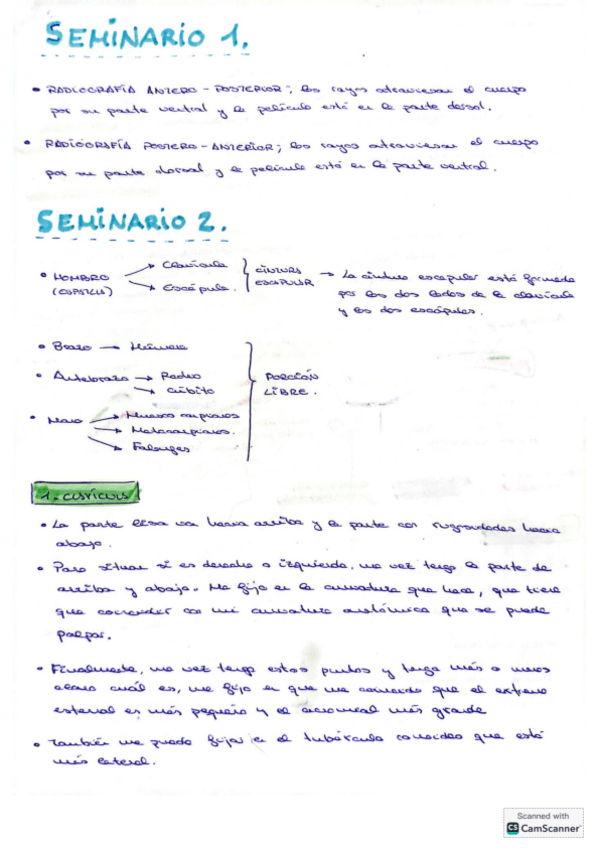 SEMINARIO 1.
• RADIOGRAFÍA ANTERO-POSTERIOR; los rayos atraviesan el cuerpo
por su parte ventral y la película está en la parte dorsal.
• RADIOGRAFÍA POSTERO-ANTERIOR; los rayos atraviesan el cuerpo
por su parte dorsal y la película está en la parte ventral.
SEMINARIO 2.
• HOMBRO → Clavícula
→ Escápula. CINTURA ESCAPULAR → La cintura escapular está formada
por los dos lados de la clavícula
y las dos escápulas.
• Brazo → Húmero
• Antebrazo → Radio
→ Cúbito
PORCIÓN
LIBRE.
• Mano → Huesos carpianos
→ Metacarpianos.
→ Falanges
1. CLAVÍCULA
• La parte lisa va hacia arriba y la parte con rugosidades hacia
abajo.
• Para situar si es derecha o izquierda, una vez tengo la parte de
arriba y abajo. Me fijo en la curvatura que hace, que tiene
que coincidir con mi curvatura anatómica que se puede
palpar.
• Finalmente, una vez tengo estos puntos y tenga más o menos
claro cuál es, me fijo en que me coincida que el extremo
esternal es más pequeño y el acromial más grande
• También me puedo fijar en el tubérculo conoideo que está
más lateral.
Scanned with
CS CamScanner